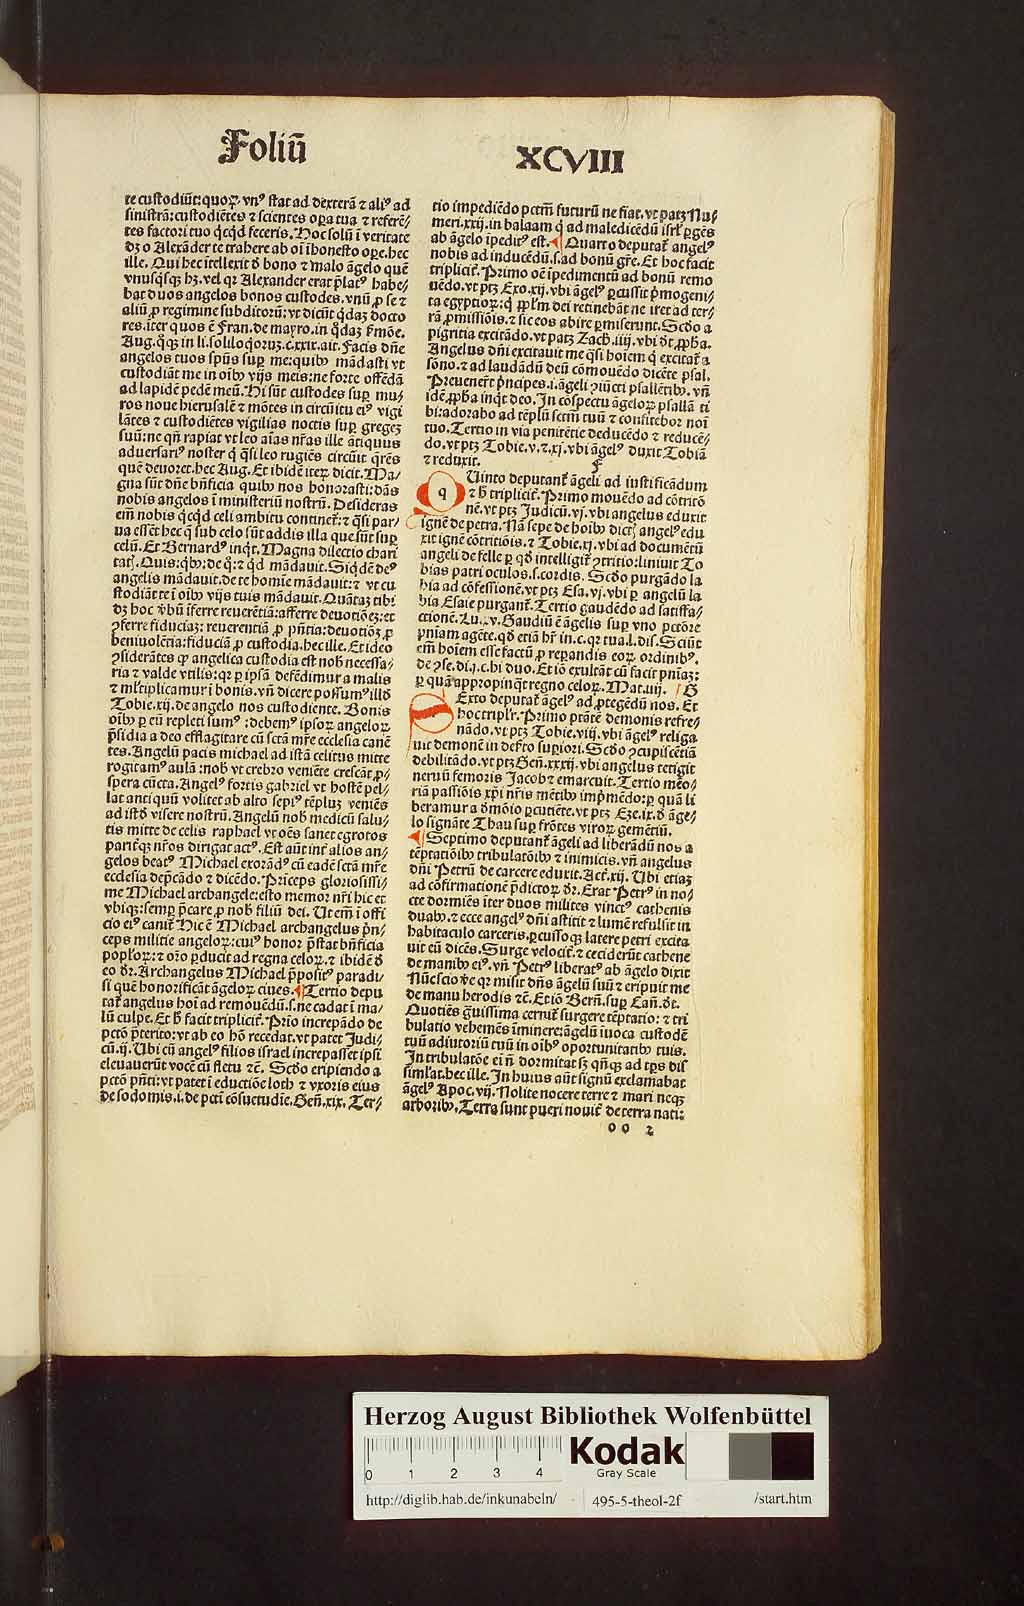 Foliū
XCVIII
te custodiūt: quoꝝ vnꝰ stat ad dexterā ⁊ aliꝰ ad
sinistrā: custodiētes ⁊ scientes oꝑa tua ⁊ referē-
tes factori tuo qͥcqͥd feceris. Hoc solū ī veritate
dꝫ o Alexāder te trahere ab oī īhonesto oꝑe. hec
ille. Qui hec ītellexit đ bono ⁊ malo āgelo quē
vnusqͥsqꝫ hꝫ. vel qꝛ Alexander erat p̄latꝰ habe-
bat duos angelos bonos custodes. vnū ꝓ se ⁊
aliū ꝓ regimine subditorū: vt dicūt qͥdaꝫ docto
res. īter quos ē Fran. de mayro. in qͥdaꝫ ẜmōe.
Aug. qͦqꝫ in li. soliloqͦoruꝫ. c. xxix. ait. Facis dn̄e
angelos tuos spūs suꝑ me: quibꝰ mādasti vt
custodiāt me in oībꝰ vijs meis: ne forte offēdā
ad lapidē pedē meū. Hi sūt custodes suꝑ mu-
ros noue hierusalē ⁊ mōtes in circūitu eiꝰ vigi
lātes ⁊ custodiētes vigilias noctis suꝑ gregeꝫ
suū: ne qn̄ rapiat vt leo aīas nr̄as ille ātiquus
aduersariꝰ noster qͥ qͣsi leo rugiēs circūit qͣrēs
quē deuoret. hec Aug. Et ibidē iteꝝ dicit. Ma-
gna sūt dn̄e bn̄ficia quibꝰ nos honorasti: dās
nobis angelos ī ministeriū nostrū. Desideras
em̄ nobis qͥcqͥd celi ambitu continet᷑: ⁊ qͣsi par-
ua essēt hec qͣ sub celo sūt addis illa que sūt suꝑ
celū. Et Bernardꝰ inqͥt. Magna dilectio chari
tatꝭ. Quis: qͥbꝰ: de qͦ: ⁊ qͥd mādauit. Siqͥdē deꝰ
angelis mādauit. de te homīe mādauit: ⁊ vt cu
stodiāt te ī oībꝰ vijs tuis mādauit. Quātaꝫ tibi
dꝫ hoc v̄bū īferre reuerētiā: afferre deuotiōeꝫ: et
ꝯferre fiduciaꝫ: reuerentiā ꝓ pn̄tia: deuotiōꝫ ꝓ
beniuolētia: fiduciā ꝓ custodia. hec ille. Et ideo
ꝯsiderātes ꝙ angelica custodia est nobꝭ necessa-
ria ⁊ valde vtilis: qꝛ ꝑ ipsā defēdimur a malis
⁊ ml̓tiplicamur ī bonis. vn̄ dicere possumꝰ illđ
Tobie. xij. de angelo nos custodiente. Bonis
oībꝰ ꝑ eū repleti sumꝰ: debemꝰ ipsoꝝ angeloꝝ
p̄sidia a deo efflagitare cū sctā mr̄e ecclesia canē
tes. Angelū pacis michael ad istā celitus mitte
rogitamꝰ aulā: nobꝭ vt crebro veniēte crescāt ꝓ-
spera cūcta. Angelꝰ fortis gabriel vt hostē pel-
lat antiquū volitet ab alto sepiꝰ tēpluꝫ veniēs
ad istđ visere nostrū. Angelū nobꝭ medicū salu-
tis mitte de celis raphael vt oēs sanet egrotos
pariterqꝫ nr̄os dirigat actꝰ. Est aūt int̓ alios an-
gelos beatꝰ Michael exorādꝰ cū eadē sctā mr̄e
ecclesia dep̄cādo ⁊ dicēdo. Princeps gloriosissi-
me Michael archangele: esto memor nr̄i hic et
vbiqꝫ: semꝑ p̄care ꝓ nobꝭ filiū dei. Ut em̄ ī offi
cio eiꝰ canit᷑ Hic ē Michael archangelus prin-
ceps militie angeloꝝ: cuiꝰ honor p̄stat bn̄ficia
popl̓oꝝ: ⁊ oro ꝑducit ad regna celoꝝ. ⁊ ibidē đ
eo dr̄. Archangelus Michael p̄positꝰ paradi-
si quē honorificāt āgeloꝝ ciues. ¶ Tertio depu
tat᷑ angelus hoī ad remouēdū. s. ne cadat ī ma-
lū culpe. Et ħ facit triplicit̓. Prīo increpādo de
pctō p̄terito: vt ab eo hō recedat. vt patet Judi-
cū. ij. Ubi cū angelꝰ filios israel increpasset ipsi
eleuauerūt vocē cū fletu ⁊c. Scđo eripiendo a
pctō pn̄ti: vt patet ī eductiōe loth ⁊ vxoris eius
de sodomis. i. de pcti cōsuetudīe. Gen̄. xix. Ter-
tio impediēdo pctm̄ futurū ne fiat. vt patꝫ Nu-
meri. xxij. in balaam qͥ ad maledicēdū isrl̓ ꝑgēs
ab āgelo īpeditꝰ est. ¶ Quarto deputat᷑ angelꝰ
nobis ad inducēdū. s. ad bonū gr̄e. Et hoc facit
triplicit̓. Primo oē īpedimentū ad bonū remo
uēdo. vt ptꝫ Exo. xij. vbi āgelꝰ ꝑcussit p̄mogeni-
ta egyptioꝝ: qͥ ppl̓m dei retinebāt ne iret ad ter-
rā ꝓmissiōis. ⁊ sic eos abire ꝑmiserunt. Scđo a
pigritia excitādo. vt patꝫ Zach. iiij. vbi dt̓. ꝓpħa.
Angelus dn̄i excitauit me qͣsi hoīem qͥ excitat᷑ a
sōno. ⁊ ad laudādū deū cōmouēdo dicēte psal.
Preuenert̓ p̄ncipes. i. āgeli ꝯiūcti psallētibꝰ. vn̄
idē ꝓpħa inqͥt deo. In cōspectu āgeloꝝ psallā ti
bi: adorabo ad tēplū sctm̄ tuū ⁊ confitebor noī
tuo. Tertio in via penitētie deducēdo ⁊ reducē-
do. vt ptꝫ Tobie. v. ⁊. xj. vbi āgelꝰ duxit Tobiā
⁊ reduxit. F
q
Uinto deputant᷑ āgeli ad iustificādum
⁊ ħ triplicit̓. Primo mouēdo ad cōtritō
nē. vt ptꝫ Judicū. vj. vbi angelus eduxit
ignē de petra. Nā sepe de hoībꝰ dictꝭ angelꝰ edu
xit ignē cōtritiōis. ⁊ Tobie. xj. vbi ad documētū
angeli de felle ꝑ qđ intelligit᷑ ꝯtritio: liniuit To
bias patri oculos. s. cordis. Scđo purgādo la
bia ad cōfessionē. vt ptꝫ Esa. vj. vbi ꝑ angelū la
bia Esaie purgant᷑. Tertio gaudēdo ad satisfa-
ctionē. Lu. xv. Gaudiū ē āgelis suꝑ vno pctōre
pn̄iam agēte. qđ etiā hr̄ in. c. qꝛ tua. l. dis. Sciūt
em̄ hoīem esse factū ꝓ reꝑandis eoꝝ ordinibꝰ.
de ꝯse. di. j. c. bi duo. Et iō exultāt cū facit pn̄iaꝫ:
ꝑ quā appropinqͣt regno celoꝝ. Mat. iij. G
S
Exto deputat᷑ āgelꝰ ad ꝓtegēdū nos. Et
hoc tripl̓r. Primo p̄tātē demonis refre-
nādo. vt ptꝫ Tobie. viij. vbi āgelꝰ religa
uit demonē in deẜto suꝑiori. Scđo ꝯcupiscētiā
debilitādo. vt ptꝫ Gen̄. xxxij. vbi angelus tetigit
neruū femoris Jacob ⁊ emarcuit. Tertio mēo-
riā passiōis xp̄i nr̄is mētibꝰ imp̄mēdo: ꝑ quā li
beramur a đmōio ꝑcutiēte. vt ptꝫ Eze. ix. đ āge-
lo signāte Thau suꝑ frōtes viroꝝ gemētiū.
¶ Septimo deputant᷑ āgeli ad liberādū nos a
tēptatiōibꝰ tribulatōibꝰ ⁊ inimicis. vn̄ angelus
dn̄i Petrū de carcere eduxit. Act̓. xij. Ubi etiaꝫ
ad cōfirmationē p̄dictoꝝ dr̄. Erat Petrꝰ in no-
cte dormiēs īter duos milites vinctꝰ cathenis
duabꝰ. ⁊ ecce angelꝰ dn̄i astitit ⁊ lumē refulsit in
habitaculo carceris. ꝑcussoqꝫ latere petri excita
uit eū dicēs. Surge velocit̓. ⁊ ceciderūt cathene
de manibꝰ eiꝰ. vn̄ Petrꝰ liberatꝰ ab āgelo dixit
Nūc scio v̄e qꝛ misit dn̄s āgelū suū ⁊ eripuit me
de manu herodis ⁊c. Et iō Bern̄. suꝑ Can̄. dt̓.
Quotiēs gͣuissima cernit᷑ surgere tēptatio: ⁊ tri
bulatio vehemēs īminere: āgelū īuoca custodē
tuū adiutoriū tuū in oībꝰ oportunitatibꝰ tuis.
In tribulatōe ei n̄ dormitat sꝫ qn̄qꝫ ad tp̄s dis
simĺat. hec ille. In huius aūt signū exclamabat
āgelꝰ Apoc. vij. Nolite nocere terre ⁊ mari neqꝫ
arboribꝰ. Terra sunt pueri nouit̓ de terra nati:
oo 2
Herzog August Bibliothek Wolfenbüttel
0 1 2 3 4
Kodak
Gray Scale
http://diglib.hab.de/inkunabeln/ 495-5-theol-2f /start.htm